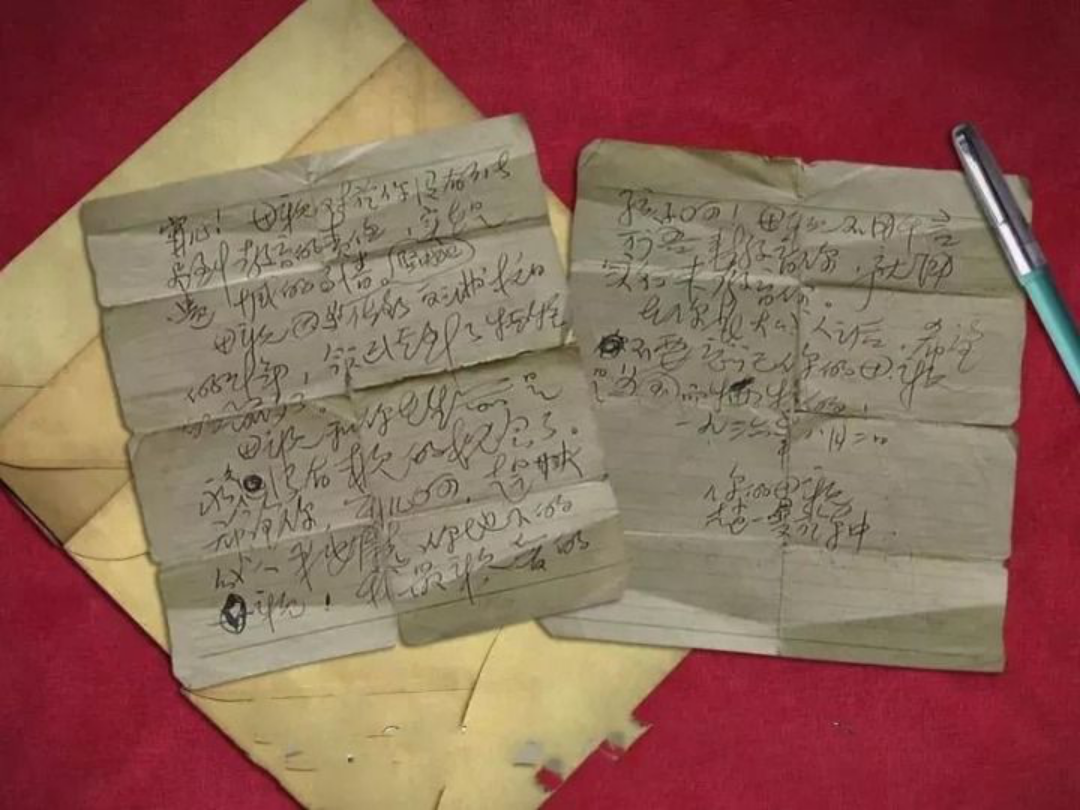 母亲对于你没有能尽
到教育的责任,实在是
遗憾的事情。
母亲因为
的斗争,今天已经到了牺牲
的前夕了。
母亲和你在生前是
没有再见的机会了。
希望你,宁儿啊!赶快
成人,来安慰你地下的
母亲!我最亲爱的
孩子啊!母亲不用千言
万语来教育你,就用
实行来教育你。
在你长大成人之后,希望
不要忘记你的母亲
是为国而牺牲的!
一九三六年八月二日
你的母亲
赵一曼于车中